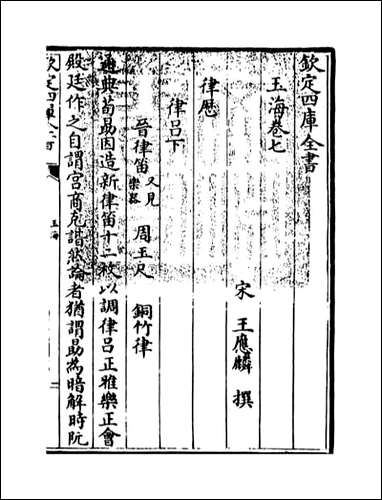 欽定四庫全書
玉海卷七
宋 王應麟 撰
律厯
律呂下
晉律笛又見樂器 周玉尺 銅竹律
通典荀勗因造新律笛十二枚以調律呂正雅樂正會
殿廷作之自謂宮商克諧然論者猶謂勗為暗解時阮
欽定四庫全書
玉海